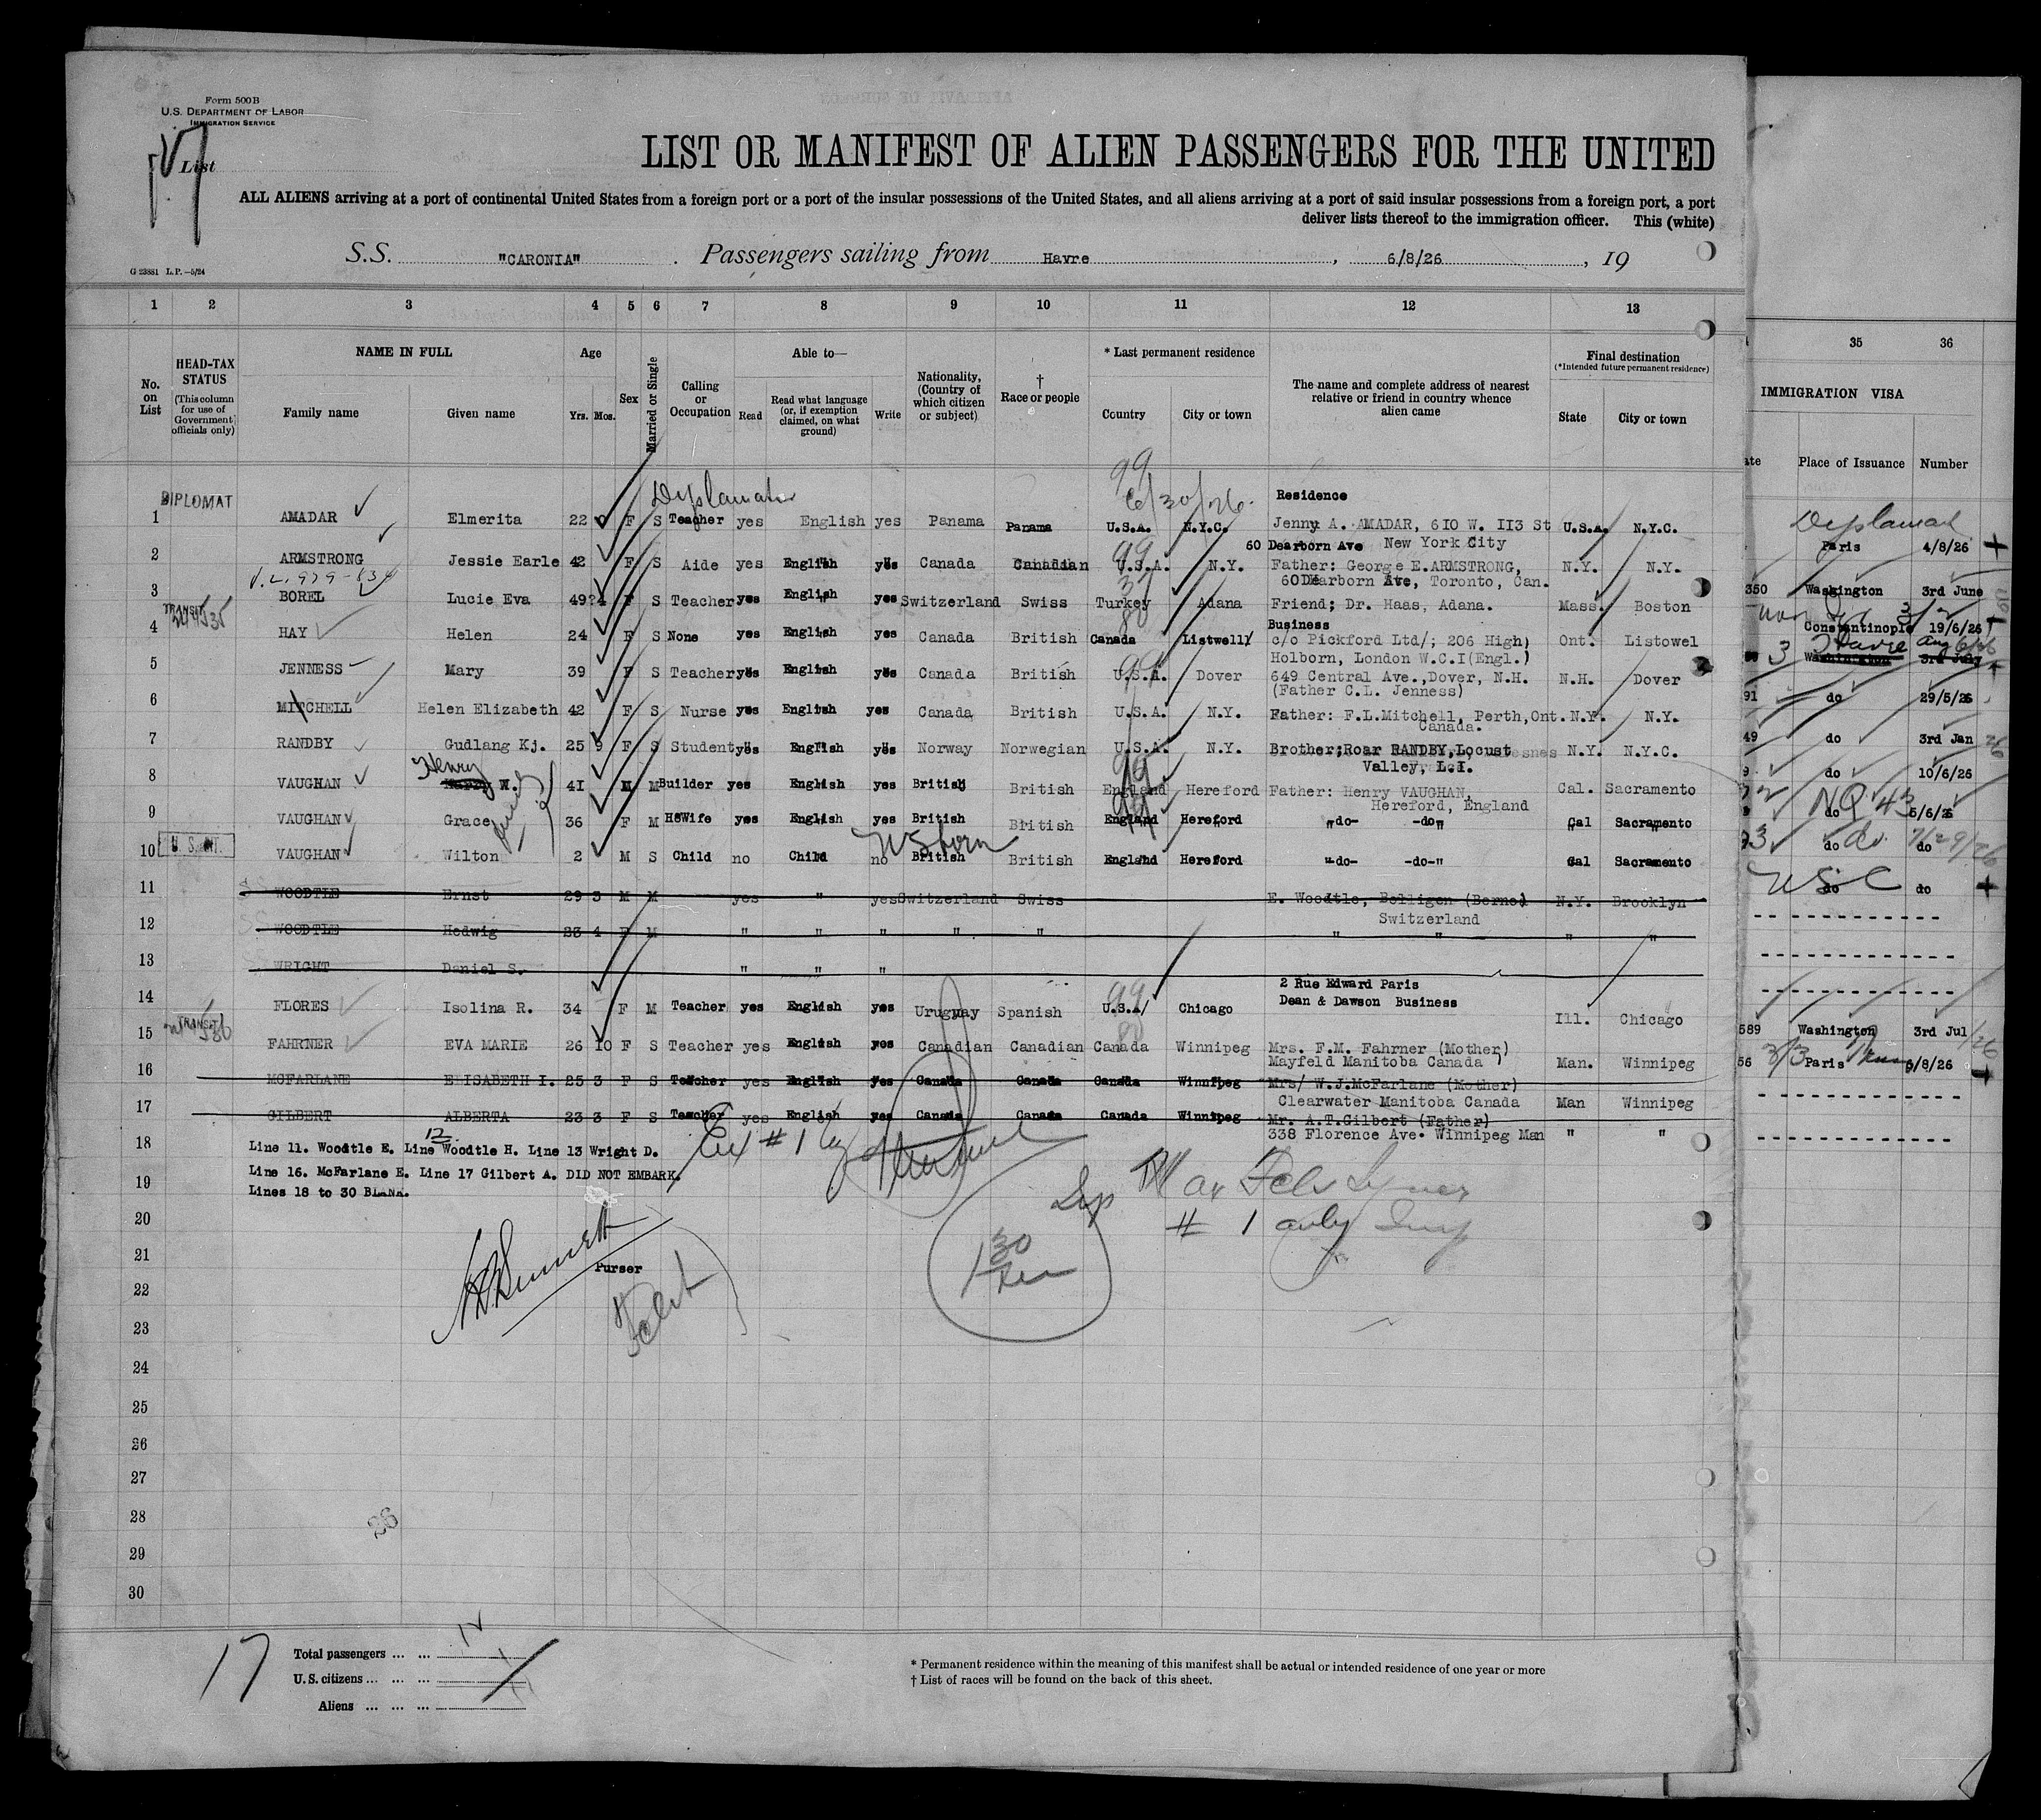 Form 500B
U.S. DEPARTMENT OF LABOR
IMMIGRATION SERVICE
List
17
LIST OR MANIFEST OF ALIEN PASSENGERS FOR THE UNITED
ALL ALIENS arriving at a port of continental United States from a foreign port or a port of the insular possessions of the United States, and all aliens arriving at a port of said insular possessions from a foreign port, a port
deliver lists thereof to the immigration officer. This (white)
S.S. "CARONIA". Passengers sailing from Havre, 6/8/26, 19
G 23881 L.P.—5/24
1 2 3 4 5 6 7 8 9 10 11 12 13 35 36
No. on List
HEAD-TAX STATUS (This column for use of Government officials only)
NAME IN FULL
Family name Given name
Age
Yrs. Mos.
Sex
Married or Single
Calling or Occupation
Able to—
Read
Read what language (or, if exemption claimed, on what ground)
Write
Nationality, (Country of which citizen or subject)
† Race or people
* Last permanent residence
Country City or town
The name and complete address of nearest relative or friend in country whence alien came
Final destination
(*Intended future permanent residence)
State City or town
IMMIGRATION VISA
Place of Issuance Number
DIPLOMAT
99
6/30/26.
Residence
1 AMADAR Elmerita 22 F S Teacher yes English yes Panama Panama U.S.A. N.Y.C. Jenny A. AMADAR, 610 W. 113 St U.S.A. N.Y.C.
New York City
Paris 4/8/26
60 Dearborn Ave
2 ARMSTRONG Jessie Earle 42 F S Aide yes English yes Canada Canadian U.S.A. N.Y. Father: George E.ARMSTRONG, N.Y. N.Y.
Toronto, Can.
350 Washington 3rd June
3 BOREL Lucie Eva 49 F S Teacher yes English yes Switzerland Swiss Turkey Adana Friend; Dr. Haas, Adana. Mass. Boston
Constantinople 19/6/26
TRANSIT
Business
4 HAY Helen 24 F S None yes English yes Canada British Canada Listwell c/o Pickford Ltd/; 206 High) Ont. Listowel
Holborn, London W.C.I(Engl.)
Washington 3rd July
5 JENNESS Mary 39 F S Teacher yes English yes Canada British U.S.A. Dover 649 Central Ave.,Dover, N.H. N.H. Dover
(Father C.L. Jenness)
91 do 29/5/26
6 MITCHELL Helen Elizabeth 42 F S Nurse yes English yes Canada British U.S.A. N.Y. Father: F.L.Mitchell, Perth,Ont. N.Y. N.Y.
Canada.
49 do 3rd Jan
7 RANDBY Gudlang Kj. 25 9 F S Student yes English yes Norway Norwegian U.S.A. N.Y. Brother;Roar RANDBY,Locust N.Y. N.Y.C.
Valley, L.I.
do 10/6/26
Henry
8 VAUGHAN W. 41 M M Builder yes English yes British British England Hereford Father: Henry VAUGHAN, Cal. Sacramento
Hereford, England
do 5/6/26
9 VAUGHAN Grace 36 F M HsWife yes English yes British British England Hereford "do- -do" Cal Sacramento
do do
U.S. born
10 VAUGHAN Wilton 2 M S Child no Child no British British England Hereford "-do- -do-" Cal Sacramento
USC do do
11 WOODTLE Ernst 29 3 M M yes " yes Switzerland Swiss E. Woodtle, Bolligen (Berne) N.Y. Brooklyn
Switzerland
12 WOODTLE Hedwig 23 4 F M " " " " " " " " "
13 WRIGHT Daniel S. " " "
2 Rue Edward Paris
Dean & Dawson Business
14 FLORES Isolina R. 34 F M Teacher yes English yes Uruguay Spanish U.S.A/ Chicago Ill. Chicago
589 Washington 3rd Jul
TRANSIT
15 FAHRNER EVA MARIE 26 10 F S Teacher yes English yes Canadian Canadian Canada Winnipeg Mrs. F.M. Fahrner (Mother)
Mayfeld Manitoba Canada ) Man. Winnipeg
56 Paris 6/8/26
16 MCFARLANE ELISABETH I. 25 3 F S Teacher yes English yes Canada Canada Canada Winnipeg Mrs/ W.J.McFarlane (Mother)
Clearwater Manitoba Canada Man Winnipeg
17 GILBERT ALBERTA 23 3 F S Teacher yes English yes Canada Canada Canada Winnipeg Mr. A.T.Gilbert (Father)
338 Florence Ave. Winnipeg Man " "
18 Line 11. Woodtle E. Line 12 Woodtle H. Line 13 Wright D.
Line 16. McFarlane E. Line 17 Gilbert A. DID NOT EMBARK.
19 Lines 18 to 30 BLANK.
20
21
Purser
22
23
24
25
26
27
28
29
30
17
Total passengers ... ...
U.S. citizens ... ... ...
Aliens ... ... ...
* Permanent residence within the meaning of this manifest shall be actual or intended residence of one year or more
† List of races will be found on the back of this sheet.